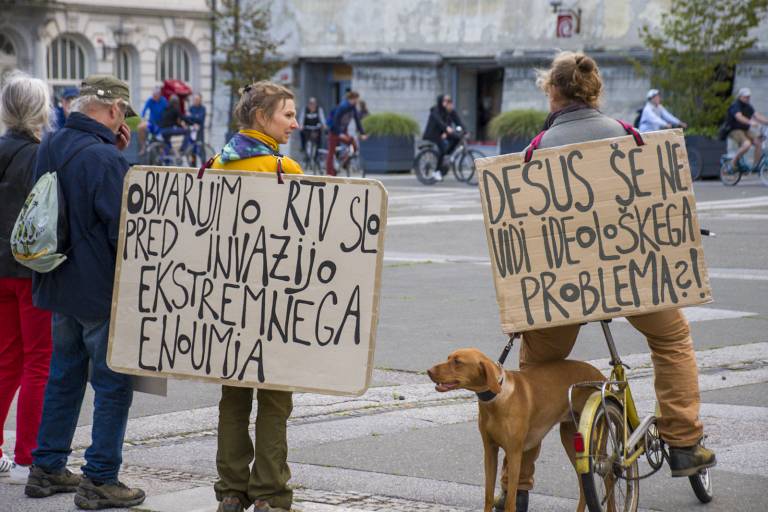 OBVARUJMO RTV SLO
PRED INVAZIJO
EKSTREMNEGA
ENOUMJA
DESUS ŠE NE
VIDI IDEOLOŠKEGA
PROBLEMA?!